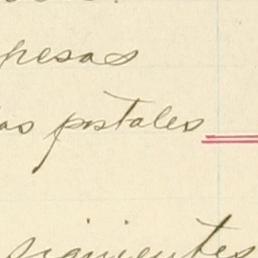 pesas
as postales
siguientes